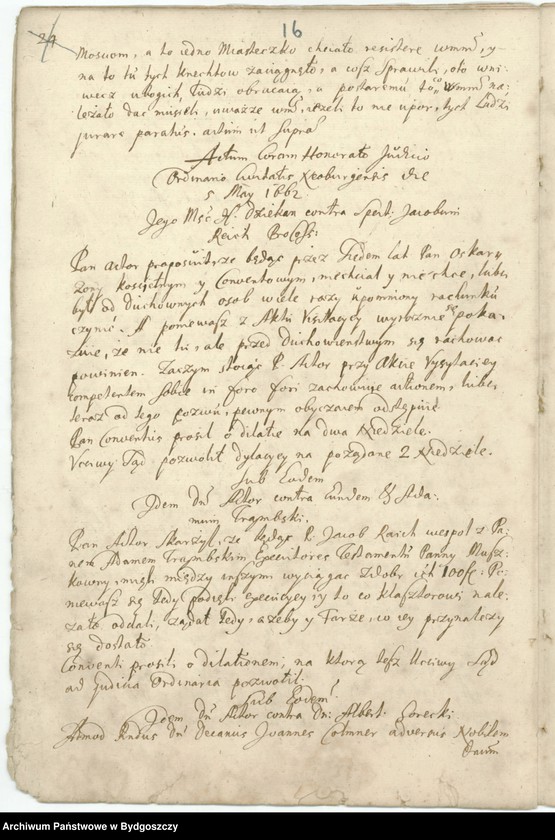 29
16
Moscom, a to iedno Miasteczko chciało resistere wmm, y
na to tu tych knechtow zaciągnęło, a cosz sprawili, oto wni-
wecz ubogich ludzi obrucaią, a postaremu co wmm na-
leżało dać musieli, uważże wm, ieżeli to nie upor, tych ludzi
jurare paratus. actum ut supra
Actum Coram Honorato Judicio
Ordinario Civitatis Neoburgensis die
5 May 1662
Jego Msc X. Dziekan contra Spect. Jacobum
Reich Procoss:
Pan Actor proposuit, ze będąc przez siedem lat Pan Oskar
zony koscielnym y Conventowym, niechciał y nie chce, lubo
był od duchownych osob wiele razy upomniony rachunku
czynic. A poniewasz z Aktu Visitacyey wyraznie się poka-
zuie, że nie tu, ale przed duchowienstwem się rachowac
powinien. Zaczym stoiąc P. Actor przy Akcie Vysytacyey
competentem sobie in foro fori zachowuie actionem, lubo
teraz od tego pozwu, pewnym obyczaiem odstępuie
Pan Conventus prosił o dilatie na dwa Niedziele.
Uczciwy Sąd pozwolił dylacyey na pożądane 2 Niedziele.
Sub Eodem
Idem Dn Aktor contra Eundem & Ada:
mum Trąmbski.
Pan Aktor skarżył, ze będąc P. Jacob Raich wespol z Pa-
nem Adamem Trąmbskim Executores Testamentu Panny
kowny, mieli między inszymi wyciągac z dobr ich 100 fl. Po-
niewasz się tedy podięli execucyey, y to co klasztorowi nale-
żało oddali, żądał tedy, ażeby y Farze, co iey przynależy
się dostało
Conventi prosili o dilationem, na ktorą tesz Ucciwy Sąd
ad Judicia Ordinaria pozwolił.
Sub Eodem
Idem Dn Aktor contra Dn: Albert: Gorecki
Admod Rndus Dn Decanus Joannes Colmner adversus Nobilem
Archiwum Państwowe w Bydgoszczy